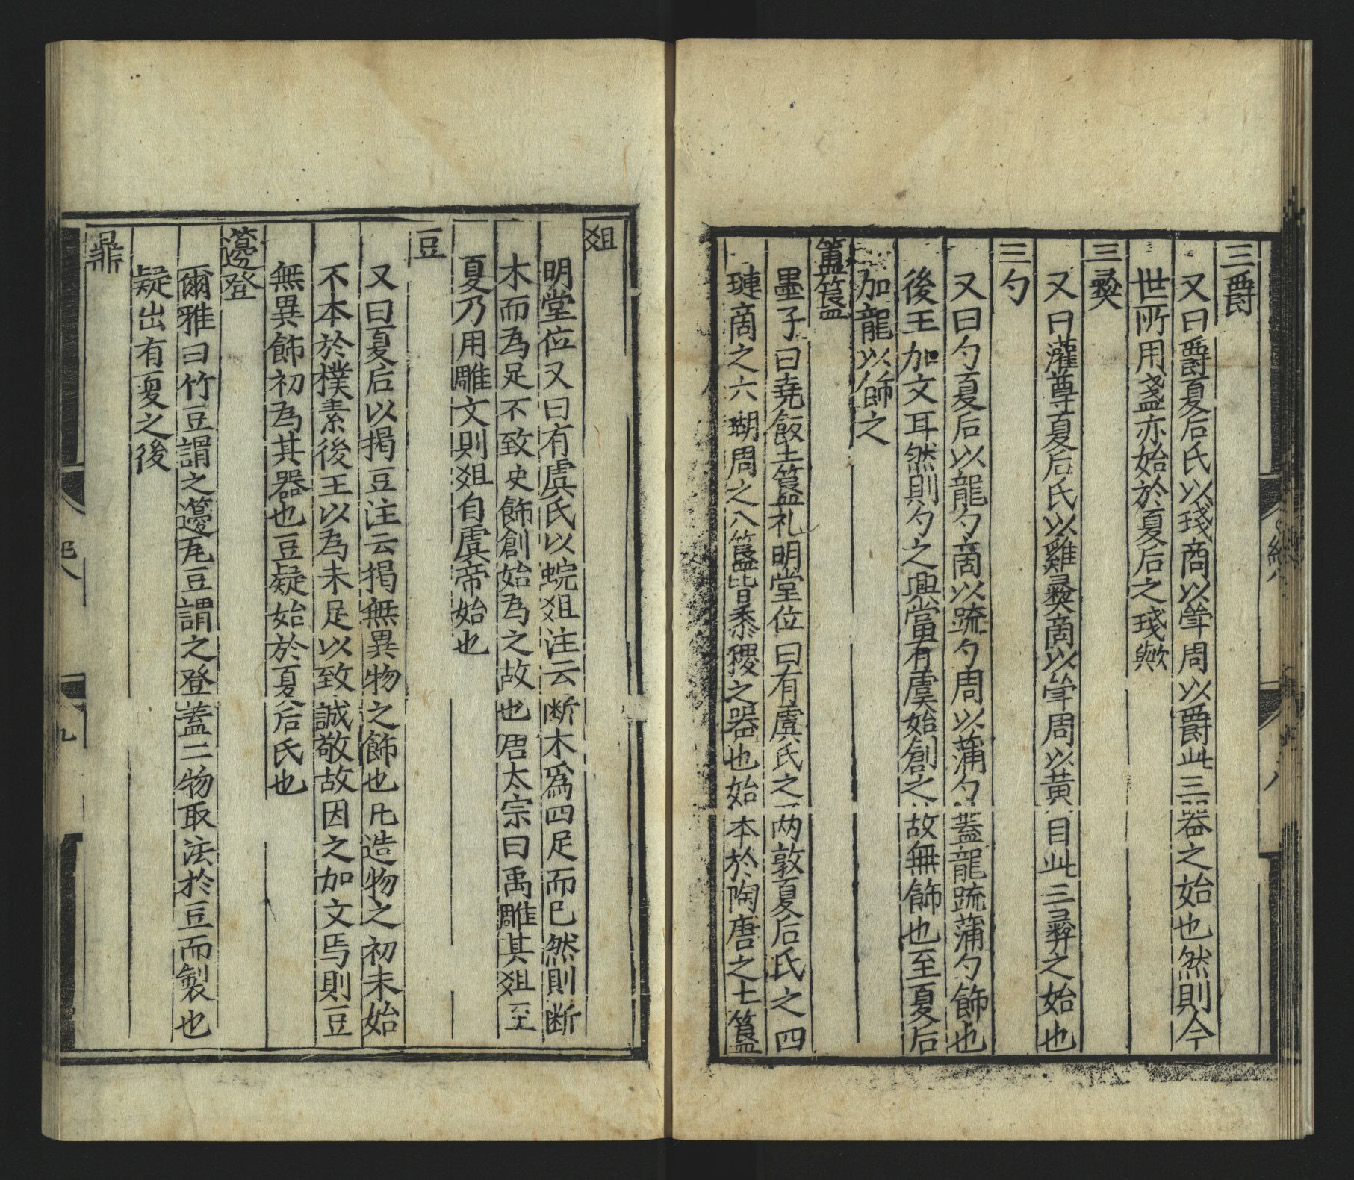 三爵
又曰爵夏后氏以琖商以斝周以爵此三器之始也然則今
世所用盞亦始於夏后之琖歟
三彛
又曰灌尊夏后氏以雞彛商以斝周以黄目此三彛之始也
三勺
又曰勺夏后以龍勺商以疏勺周以蒲勺蓋龍疏蒲勺飾也
後王加文耳然則勺之興當有虞始創之故無飾也至夏后
加龍以飾之
簠簋
墨子曰堯飯土簋礼明堂位曰有虞氏之两敦夏后氏之四
璉商之六瑚周之八簋皆黍稷之器也始本於陶唐之土簋
俎
明堂位又曰有虞氏以梡俎注云断木爲四足而已然則断
木而為足不致文飾創始為之故也唐太宗曰禹雕其俎至
夏乃用雕文則俎自虞帝始也
豆
又曰夏后以揭豆注云揭無異物之飾也凡造物之初未始
不本於樸素後王以為未足以致誠敬故因之加文焉則豆
無異飾初為其器也豆疑始於夏后氏也
籩登
爾雅曰竹豆謂之籩瓦豆謂之登蓋二物取法於豆而製也
疑出有夏之後
鼎
九